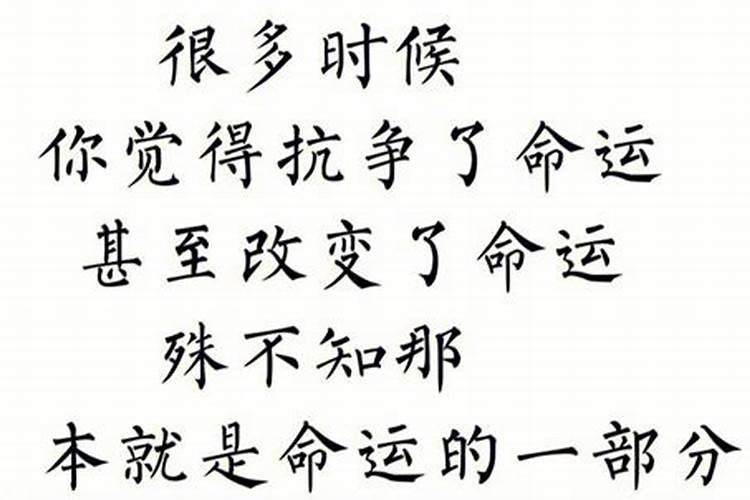 很多时候
你觉得抗争了命运
甚至改变了命运
殊不知那
本就是命运的一部分